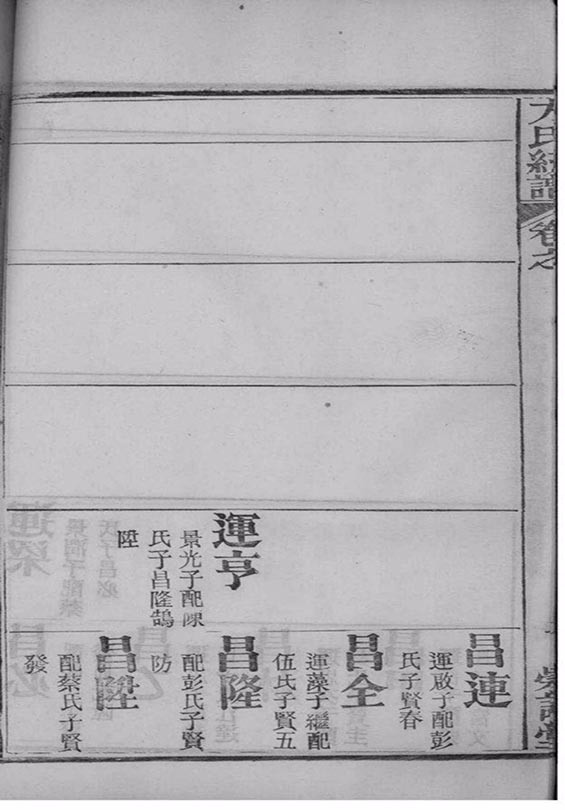 方氏統譜
卷之
運亨
景光子配陳
氏子昌隆鵠
陞
昌連
運啟子配彭
氏子賢春
昌全
運藻子繼配
伍氏子賢五
昌隆
配彭氏子賢
防
昌陞
配蔡氏子賢
發